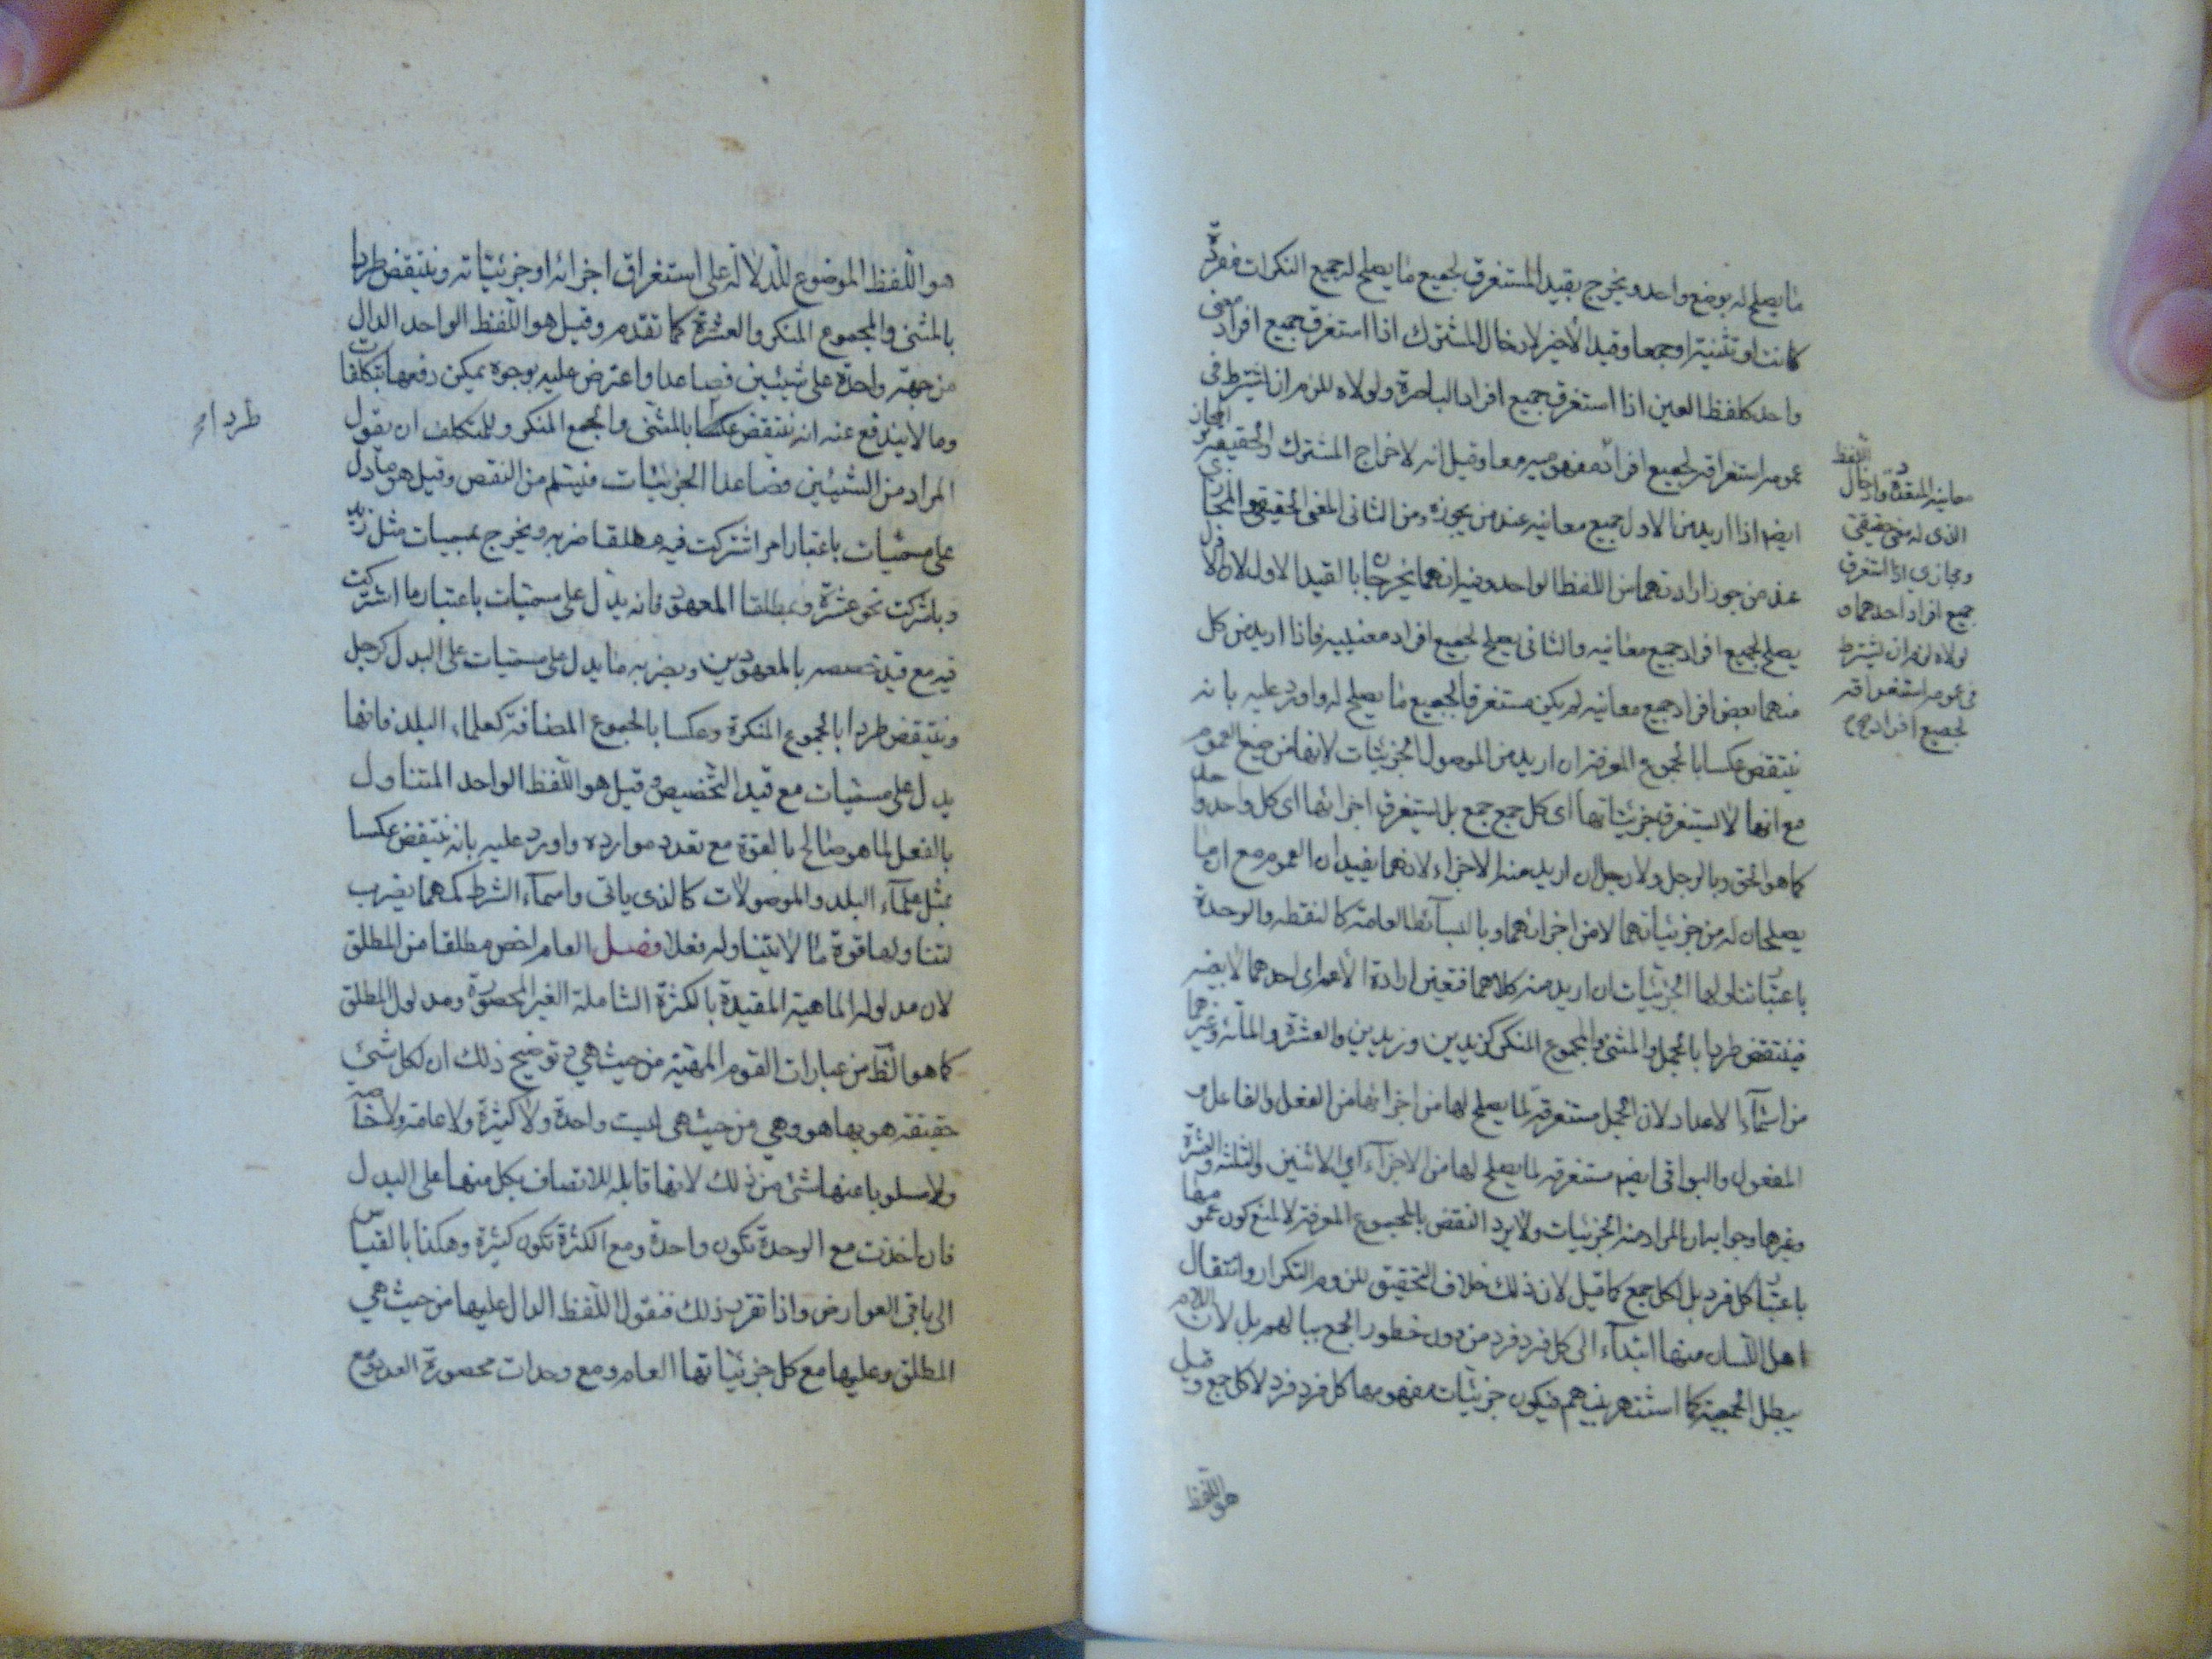 ما يصلح له بوضع واحد ويخرج بقيد المستغرق لجميع ما يصلح له جميع النكرات مفردة
كانت او تثنية او جمعا وقيد الأخير لادخال المشترك اذا استغرق جميع افراد معنى
واحد كلفظ العين اذا استغرق جميع افراد الباصرة ولولاه للزم ان يشترط في
عمومه استغراقه لجميع افراد مفهوميه معا وقيل انه لاخراج المشترك والحقيقة والمجاز
ايضم اذا اريد من الاول جميع معانيه عند من يجوزه ومن الثاني المعنى الحقيقي والمجازي
عند من جوز ارادتهما من اللفظ الواحد وفيه انهما يخرجان بالقيد الاول لان الاول
يصلح لجميع افراد جميع معانيه والثاني يصلح لجميع افراد معنييه فاذا اريد من كل
منهما بعض افراد جميع معانيه لم يكن مستغرقا لجميع ما يصلح له واورد عليه بانه
ينتقض عكسا بالجموع المعرفة ان اريد من الموصول الجزئيات لانها من صيغ العموم
مع انها لا تستغرق جزئياتها اي كل جمع جمع بل تستغرق اجزائها اي كل واحد واحد
كما هو الحق وبالرجل ولا رجل ان اريد منه الاجزاء لانهما يفيدان العموم مع ان ما
يصلحان له من جزئياتهما لا من اجزائهما وبالبسآئط العامة كالنقطه والوحدة
باعتبار تناولها الجزئيات ان اريد منه كلاهما فتعين ارادة الأعم اي احدهما لا بعينه
فينتقض طردا بالجمل والمثنى والجموع المنكر كزيدين وزيدين والعشرة والمائة وغيرهما
من اسمآء الاعداد لان الجمل مستغرقة لما يصلح لها من اجزائها من الفعل والفاعل و
المفعول والبواقي ايضم مستغرقه لما يصلح لها من الاجزآء اي الاثنين والثلثة والعشرة
وغيرها وجوابه ان المراد منه الجزئيات ولا يرد النقض بالجموع المعرفة لا لمنع كون عمومها
باعتبار كل فرد بل لكل جمع كما قيل لان ذلك خلاف التحقيق للزوم التكرار وانتقال
اهل اللسان منها ابتدآء الى كل فرد فرد من دون خطور الجمع ببالهم بل لان اللام
يبطل الجمعية كما اشتهر بينهم فيكون جزئيات مفهومها كل فرد فرد لا كل جمع وقيل
هو اللفظ
اللفظ
معانيه المتعددة وادخال
الذي له معنى حقيقي
ومجازي اذا استغرق
جميع افراد احدهما و
لولاه لزم ان يشترط
في عمومه استغراقه
لجميع افراد
هو اللفظ الموضوع للدلالة على استغراق اجزائه او جزئياته وينتقض طردا
بالمثنى والمجموع المنكر والعشرة كما تقدم وقيل هو اللفظ الواحد الدال
من جهة واحدة على شيئين فصاعدا واعترض عليه بوجوه يمكن دفعها بتكلفات
وما لا يندفع عنه انه ينتقض عكسا بالمثنى والجمع المنكر وللمتكلف ان يقول
المراد من الشيئين فصاعدا الجزئيات فيسلم من النقص وقيل هو ما دل
على مسميات باعتبار امر اشتركت فيه مطلقا ضربه ويخرج بمسميات مثل زيد
وباشتركت نحو عشرة وبمطلقا المعهود فانه يدل على مسميات باعتبار ما اشتركت
فيه مع قيد خصصه بالمعهودين وبضربه ما يدل على مسميات على البدل كرجل
وينتقض طردا بالجموع المنكرة وعكسا بالجموع المضافة كعلماء البلد فانها
يدل على مسميات مع قيد التخصيص وقيل هو اللفظ الواحد المتناول
بالفعل لما هو صالح بالقوة مع تعدد موارده واورد عليه بانه ينتقض عكسا
بمثل علمآء البلد والموصولات كالذي ياتي واسمآء الشرط كمهما يضرب
لتناولها قوة ما لا يتناوله فعلا فصل العام اخص مطلقا من المطلق
لان مدلوله الماهية المقيدة بالكثرة الشاملة الغير المحصورة ومدلول المطلق
كما هو الظ من عبارات القوم المهية من حيث هي توضيح ذلك ان لكل شئ
حقيقة هو بها هو وهي من حيث هي ليست واحدة ولا كثيرة ولا عامة ولا خاصه
ولا مسلوبا عنها شئ من ذلك لانها قابله للاتصاف بكل منها على البدل
فان اخذت مع الوحدة تكون واحدة ومع الكثرة تكون كثيرة وهكذا بالقياس
الى باقي العوارض واذا تقرر ذلك فنقول اللفظ الدال عليها من حيث هي
المطلق وعليها مع كل جزئياتها العام ومع وحدات محصورة العدد ومع
طردا